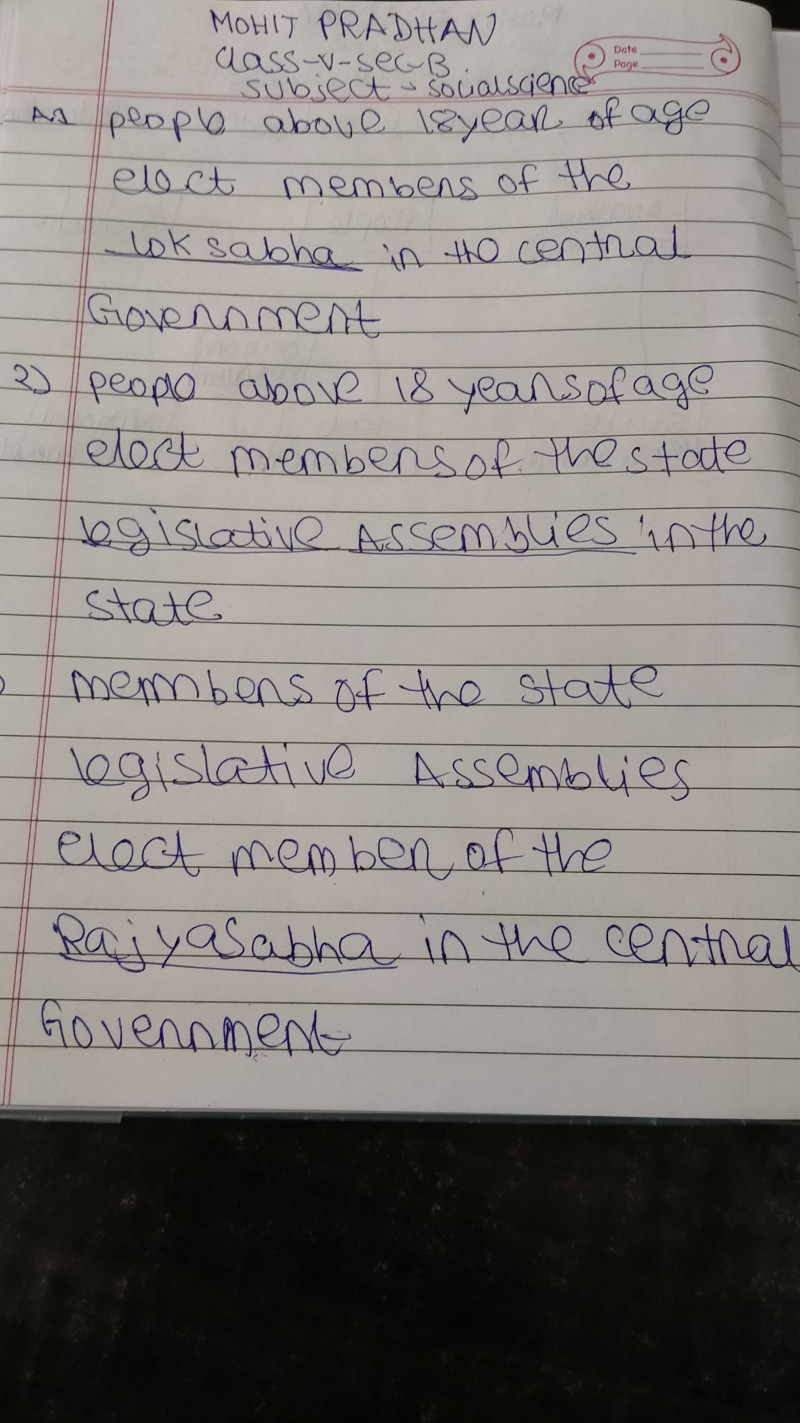 MOHIT PRADHAN
class-v-sec-B
subject - socialscience
Date
Page
A1 people above 18 year of age
elect members of the
lok sabha in the central
Government
2) people above 18 years of age
elect members of the state
legislative Assemblies in the
state
members of the state
legislative Assemblies
elect member of the
Rajyasabha in the central
Government